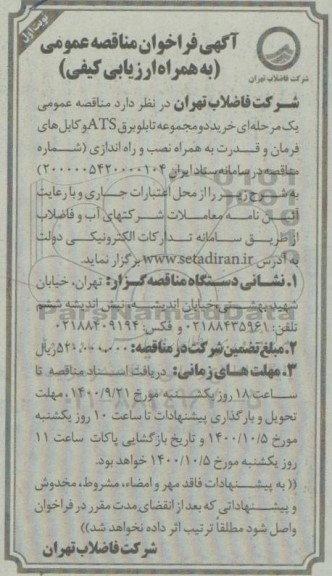 نوبت اول
آگهی فراخوان مناقصه عمومی
(به همراه ارزیابی کیفی)
شرکت فاضلاب تهران
شرکت فاضلاب تهران در نظر دارد مناقصه عمومی
یک مرحله‌ای خرید دو مجموعه تابلو برق ATS و کابل های
فرمان و قدرت به همراه نصب و راه اندازی (شماره
مناقصه در سامانه ستاد ایران ۲۰۰۰۰۰۵۴۲۰۰۰۰۱۰۴)
به شرح زیر را از محل اعتبارات جاری و با رعایت
آئین نامه معاملات شرکتهای آب و فاضلاب
از طریق سامانه تدارکات الکترونیکی دولت
به آدرس www.setadiran.ir برگزار نماید.
۱. نشانی دستگاه مناقصه گزار: تهران، خیابان
شهید بهشتی، خیابان اندیشه، نبش اندیشه ششم
تلفن: ۰۲۱۸۸۴۳۵۹۶۱ و فکس: ۰۲۱۸۸۴۰۹۱۹۴
۲. مبلغ تضمین شرکت در مناقصه: ریال
۳. مهلت های زمانی: دریافت اسناد مناقصه تا
ساعت ۱۸ روز یکشنبه مورخ ۱۴۰۰/۹/۲۱، مهلت
تحویل و بارگذاری پیشنهادات تا ساعت ۱۰ روز یکشنبه
مورخ ۱۴۰۰/۱۰/۵ و تاریخ بازگشایی پاکات ساعت ۱۱
روز یکشنبه مورخ ۱۴۰۰/۱۰/۵ خواهد بود.
(( به پیشنهادات فاقد مهر و امضاء، مشروط، مخدوش
و پیشنهاداتی که بعد از انقضای مدت مقرر در فراخوان
واصل شود مطلقاً ترتیب اثر داده نخواهد شد))
شرکت فاضلاب تهران